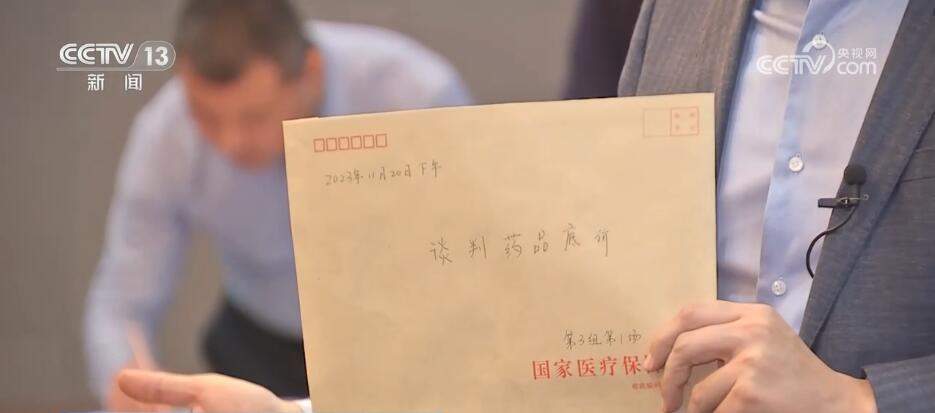 CCTV 13
新闻
央视网
CCTV.com
2023年11月20日下午
谈判药品底价
第3组第1场
国家医疗保